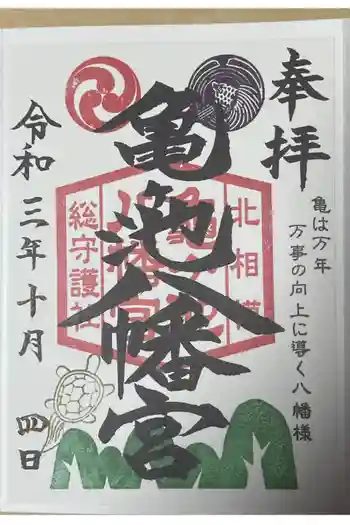 奉拝
亀は万年
万事の向上に導く八幡様
亀池八幡宮
北相模
総守護社
令和三年十月
四日